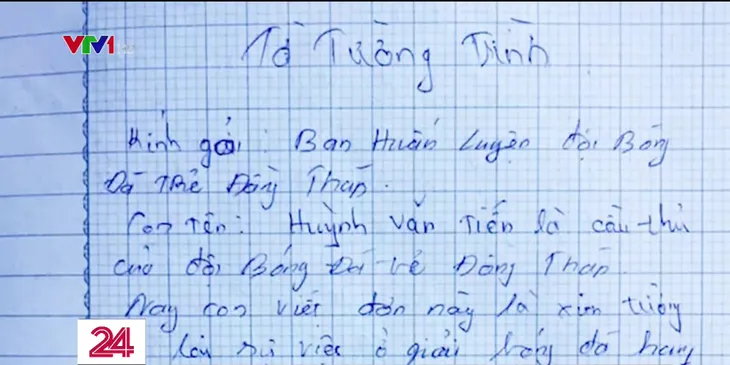 VTV1
Tờ Tường Trình
Kính gởi : Ban Huấn Luyện đội Bóng
Đá Trẻ Đồng Tháp.
Con tên : Huỳnh Văn Tiến là cầu thủ
của đội Bóng Đá trẻ Đồng Tháp.
Nay con viết đơn này là xin tường
24
lại sự việc ở giải bóng đá hạng